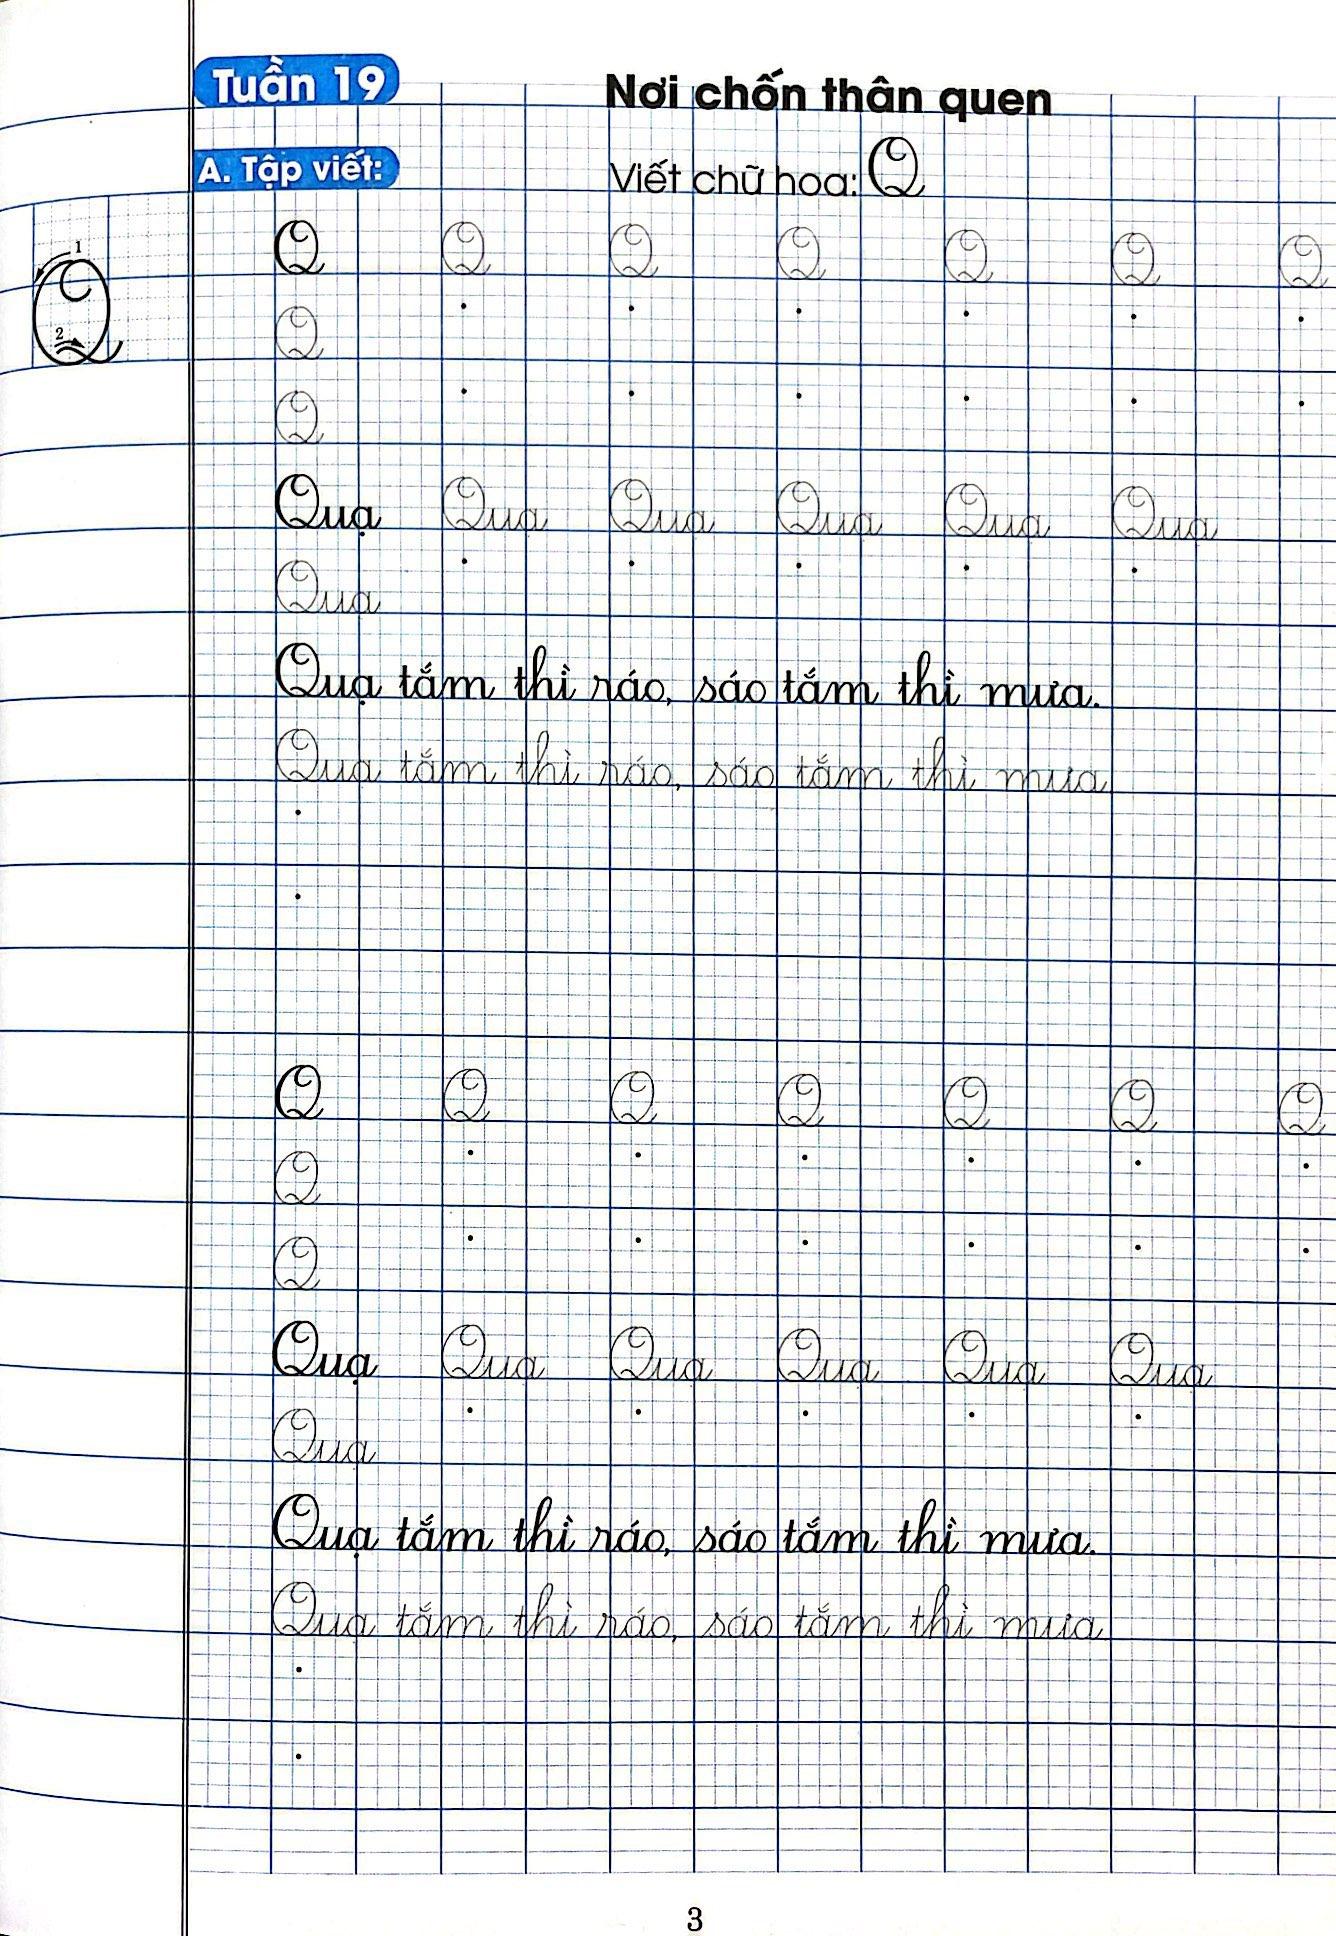 Tuần 19
Nơi chốn thân quen
A. Tập viết:
Viết chữ hoa: Q
1
2
Q
Q Q Q Q Q Q Q
Q
Q
Quạ Quạ Quạ Quạ Quạ Quạ
Quạ
Quạ tắm thì ráo, sáo tắm thì mưa.
Quạ tắm thì ráo, sáo tắm thì mưa
Q Q Q Q Q Q Q
Q
Q
Quạ Quạ Quạ Quạ Quạ Quạ
Quạ
Quạ tắm thì ráo, sáo tắm thì mưa.
Quạ tắm thì ráo, sáo tắm thì mưa
3